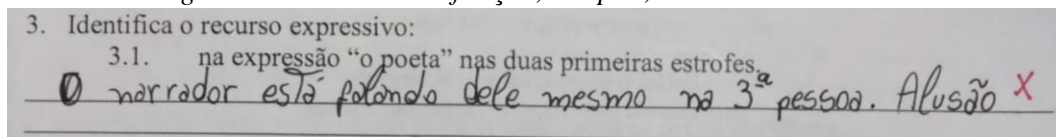 3. Identifica o recurso expressivo:
3.1. na expressão “o poeta” nas duas primeiras estrofes.
O narrador está falando dele mesmo na 3ª pessoa. Alusão X